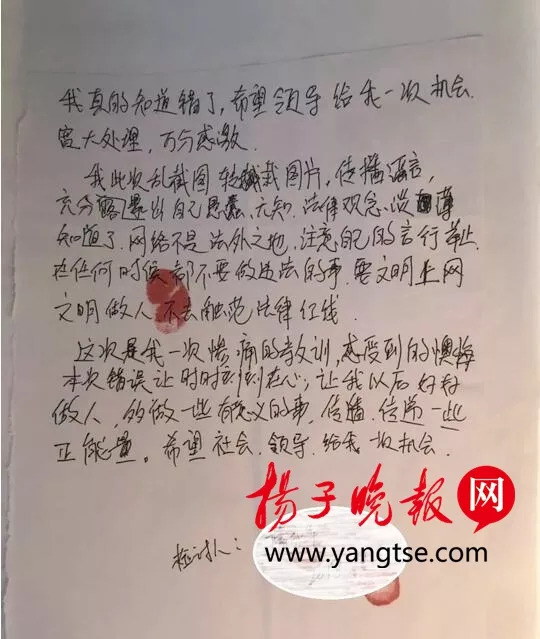 我真的知道错了，希望领导给我一次机会.
宽大处理，万分感激.
我此次乱截图 转载图片，传播谣言，
充分暴露出自己愚蠢、无知、法律观念淡薄
知道了.网络不是法外之地.注意自己的言行举止.
在任何时候都不要做违法的事.要文明上网
文明做人.不去触范法律红线.
这次是我一次惨痛的教训，感受到的懊悔
本次错误让时时刻刻在心；让我以后好好
做人.多做一些有意义的事.传播.传导一些
正能量。希望社会.领导.给我一次机会.
扬子晚报网
www.yangtse.com
检讨人：